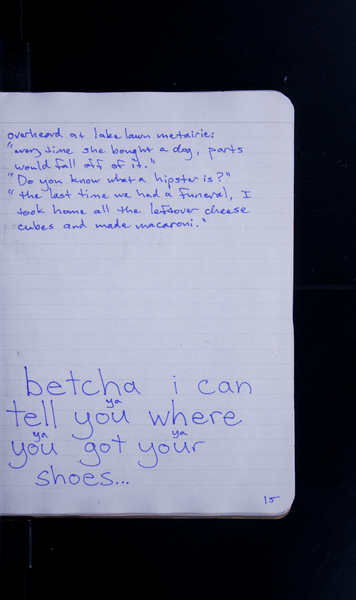 overheard at lake lawn metairie:
"every time she bought a dog, parts
would fall off of it."
"Do you know what a hipster is?"
"the last time we had a funeral, I
took home all the leftover cheese
cubes and made macaroni."
betcha i can
ya
tell you where
ya ya
you got your
shoes...
15